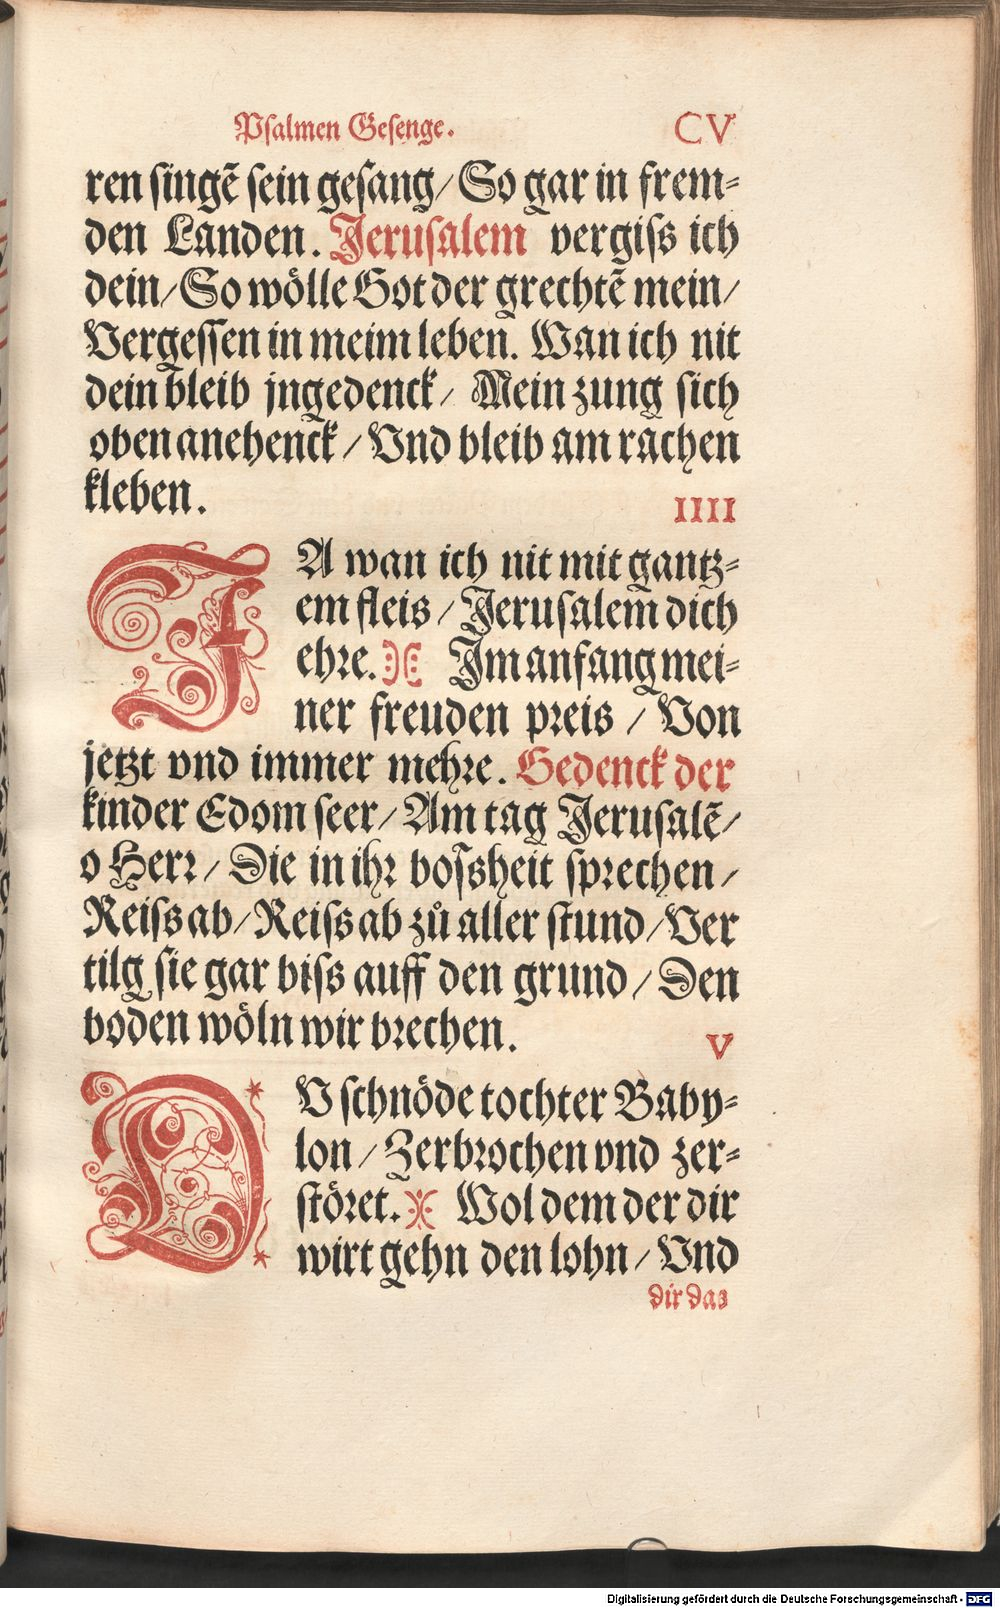 Psalmen Gesenge. CV
ren singẽ sein gesang/ So gar in frem⸗
den Landen. Jerusalem vergiss ich
dein/ So wölle Got der grechtẽ mein/
Vergessen in meim leben. Wan ich nit
dein bleib jngedenck/ Mein zung sich
oben anehenck/ Vnd bleib am rachen
kleben.
IIII
JA wan ich nit mit gantz⸗
em fleis/ Jerusalem dich
ehre. Im anfang mei⸗
ner freuden preis/ Von
jetzt vnd immer mehre. Gedenck der
kinder Edom seer/ Am tag Jerusalẽ/
o Herr/ Die in ihr bossheit sprechen/
Reiss ab/ Reiss ab zů aller stund/ Ver
tilg sie gar biss auff den grund/ Den
boden wöln wir brechen.
V
DV schnöde tochter Baby⸗
lon/ Zerbrochen vnd zer⸗
störet. Wol dem der dir
wirt gehn den lohn/ Vnd
dir das
Digitalisierung gefördert durch die Deutsche Forschungsgemeinschaft - DFG